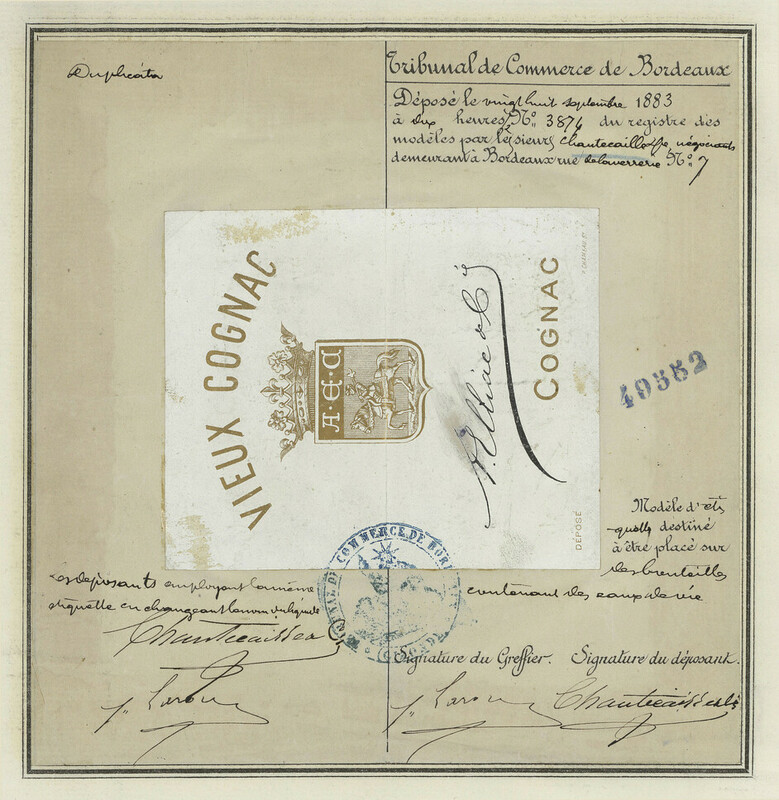 Duplicata
Tribunal de Commerce de Bordeaux
Déposé le vingt huit septembre 1883
à dix heures, No. 3874 du registre des
modèles par les sieurs Chantecaille négociants
demeurant à Bordeaux rue de la verrerie No. 7
VIEUX COGNAC
A·E·C
COGNAC
DÉPOSÉ
49552
Modèle d'
destiné
à être placé sur
des bouteilles
contenant des eaux de vie
Les déposants employant la même
étiquette en changeant le nom du liquide
TRIBUNAL DE COMMERCE DE BORDEAUX
Signature du Greffier. Signature du déposant.